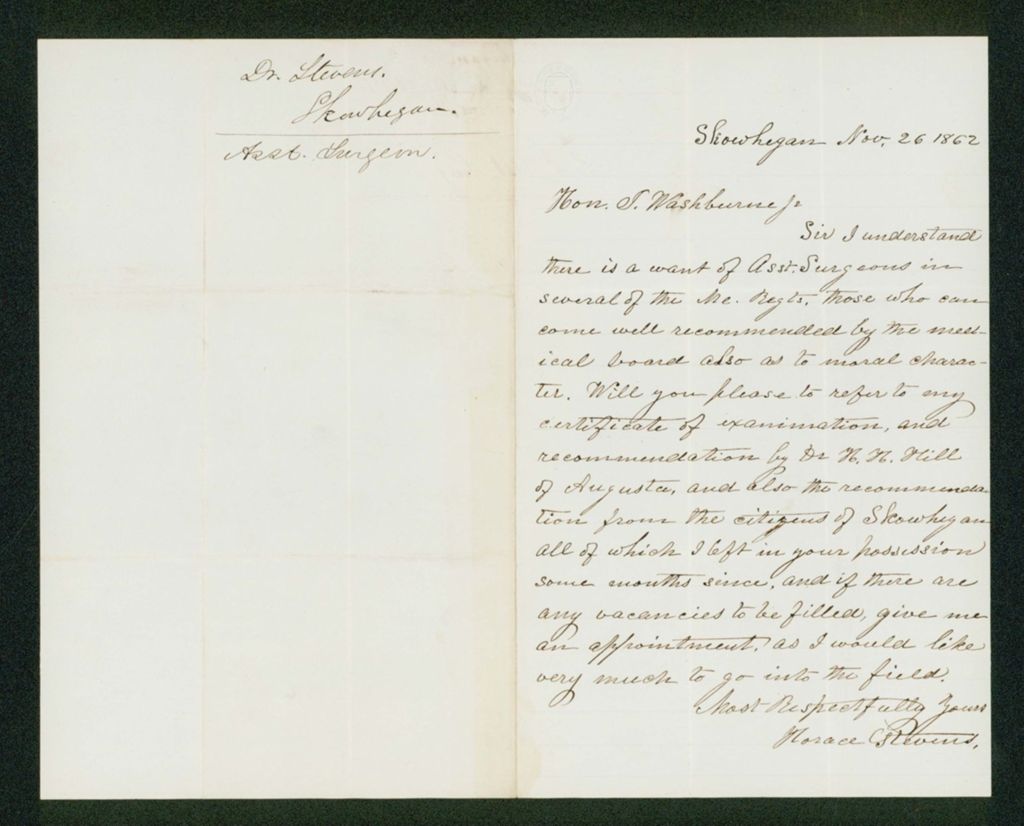 Dr. Stevens.
Skowhegan.
Asst. Surgeon.
Skowhegan Nov. 26 1862
Hon. I. Washburne Jr
Sir I understand
there is a want of Asst. Surgeons in
several of the Me. Regts. those who can
come well recommended by the med-
ical board also as to moral charac-
ter. Will you please to refer to my
certificate of exanimation, and
recommendation by Dr H. H. Hill
of Augusta, and also the recommenda-
tion from the citizens of Skowhegan
all of which I left in your possession
some months since, and if there are
any vacancies to be filled, give me
an appointment, as I would like
very much to go into the field.
Most Respectfully Yours
Horace Stevens.